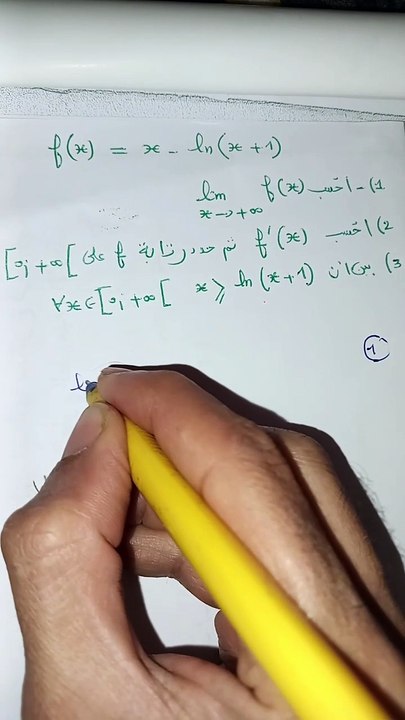 f(x) = x - ln(x+1)
1)- احسب lim f(x) x→+∞
2) احسب f'(x) ثم حدد رتابة f على [0;+∞[
3) بين ان x ⩾ ln(x+1) ∀x∈[0;+∞[
1